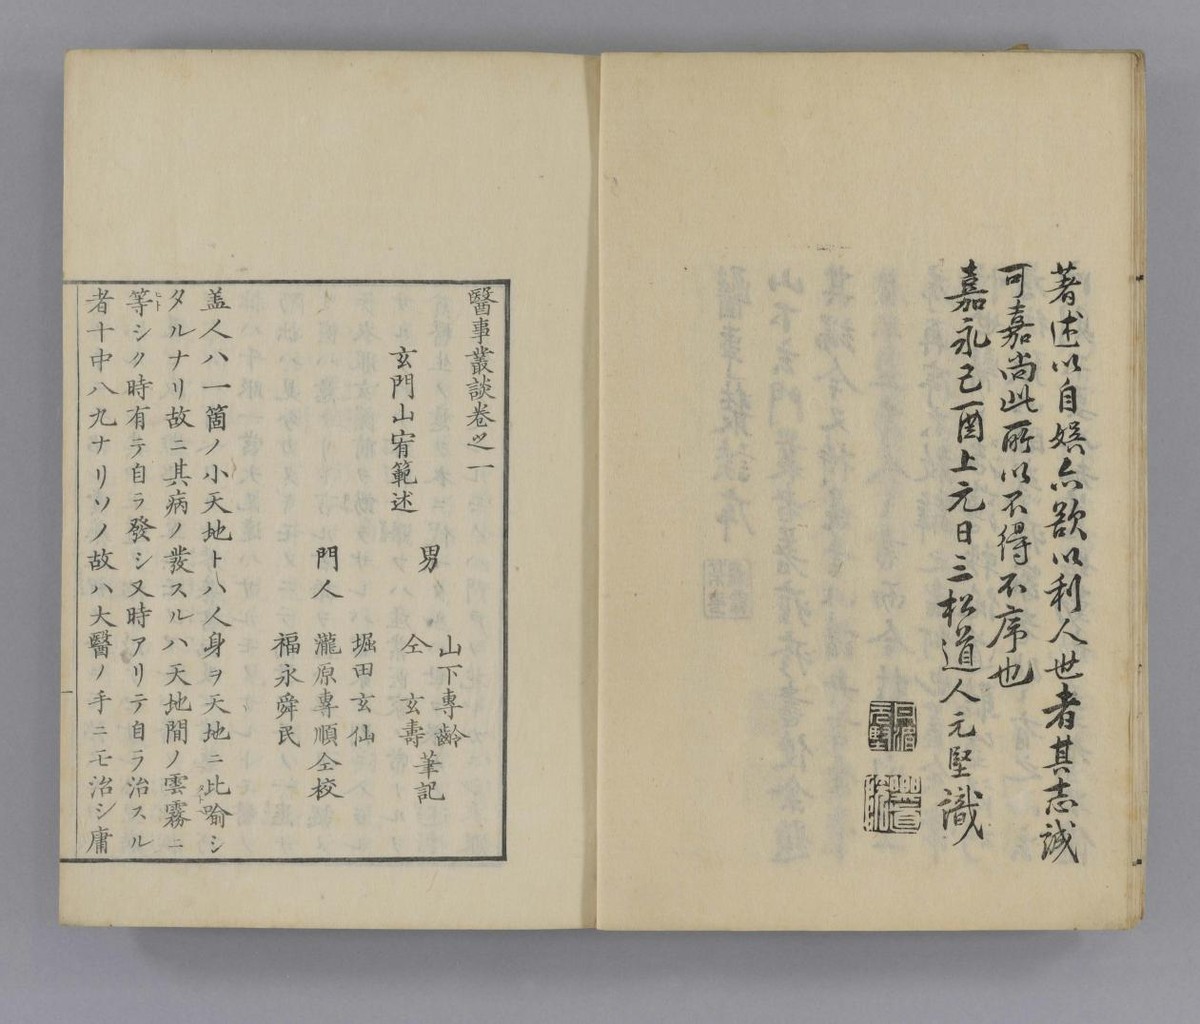 著述以自娯亦欲以利人世者其志誠
可嘉尚此所以不得不序也
嘉永己酉上元日三松道人元堅識
醫事叢談卷之一
玄門山宥範述
男
山下專齡
仝　玄壽
筆記
門人
堀田玄仙
瀧原專順仝校
福永舜民
盖人ハ一箇ノ小天地トハ人身ヲ天地ニ比喻シ
タルナリ故ニ其病ノ發スルハ天地間ノ雲霧ニ
等シク時有テ自ラ發シ又時アリテ自ラ治スル
者十中八九ナリソノ故ハ大醫ノ手ニモ治シ庸
一